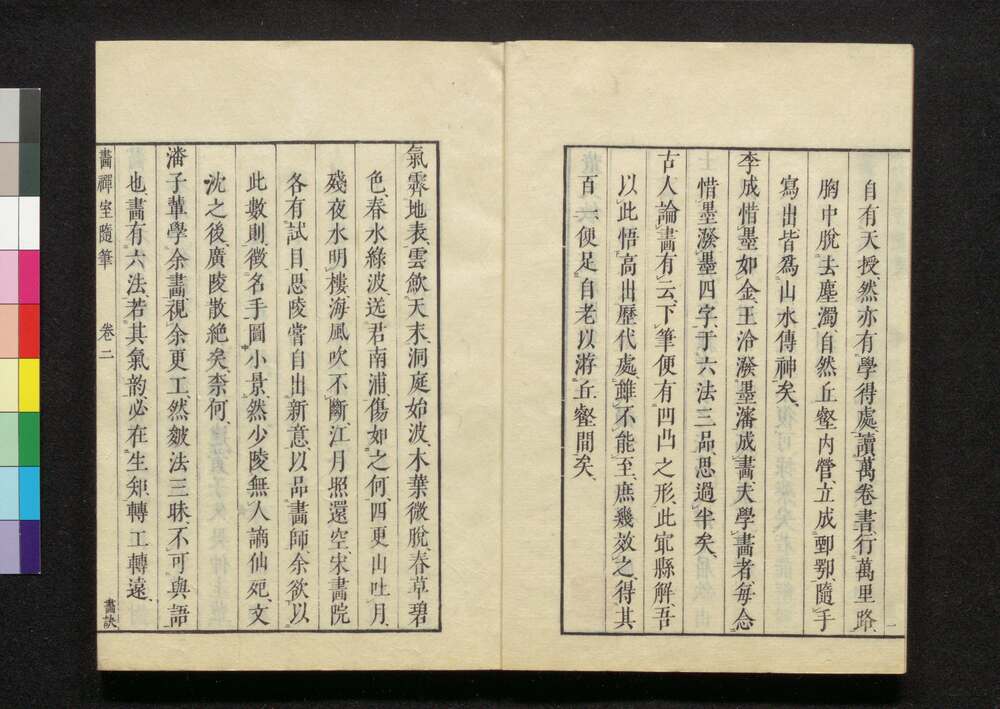 自有天授、然亦有學得處、讀萬卷書、行萬里路、
胸中脫去塵濁、自然丘壑內營、立成鄄鄂、隨手
寫出、皆為山水傳神矣、
李成惜墨如金、王洽潑墨瀋成畫、夫學畫者每念
惜墨潑墨四字、于六法三品、思過半矣、
古人論畫有云、下筆便有凹凸之形、此㝡縣解、吾
以此悟高出歷代處、雖不能至、庶幾效之、得其
百一、便足自老以游丘壑間矣、
氣霽地表、雲歛天末、洞庭始波、木葉微脫、春草碧
色、春水綠波、送君南浦、傷如之何、四更山吐月、
殘夜水明樓、海風吹不斷、江月照還空、宋畫院
各有試目、思陵嘗自出新意、以品畫師、余欲以
此數則、徵名手圖小景、然少陵無人謫仙死、文
沈之後、廣陵散絕矣、柰何、
潘子輩學余畫、視余更工、然皴法三昧、不可與語
也、畫有六法、若其氣韵必在生知、轉工轉遠、
畫禪室隨筆 卷二 畫訣
一